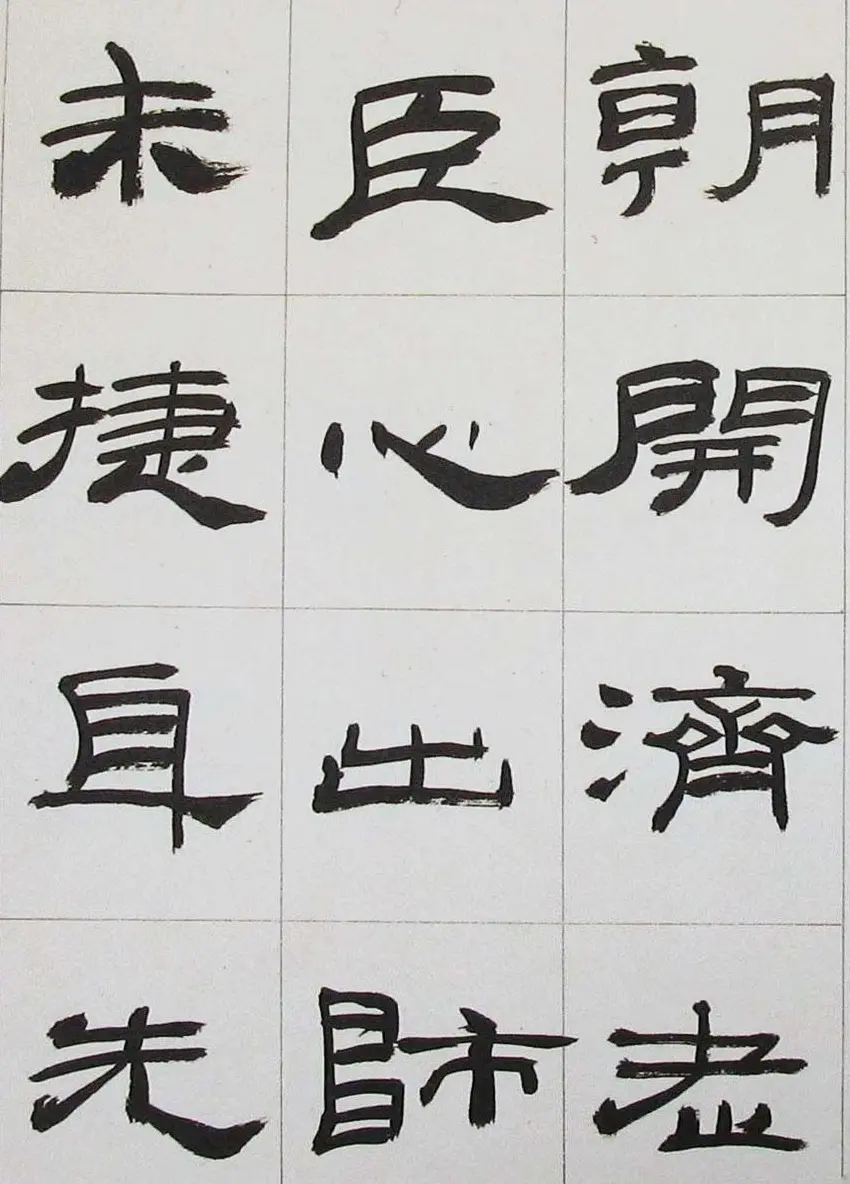 朝開濟老
臣心出師
未捷身先